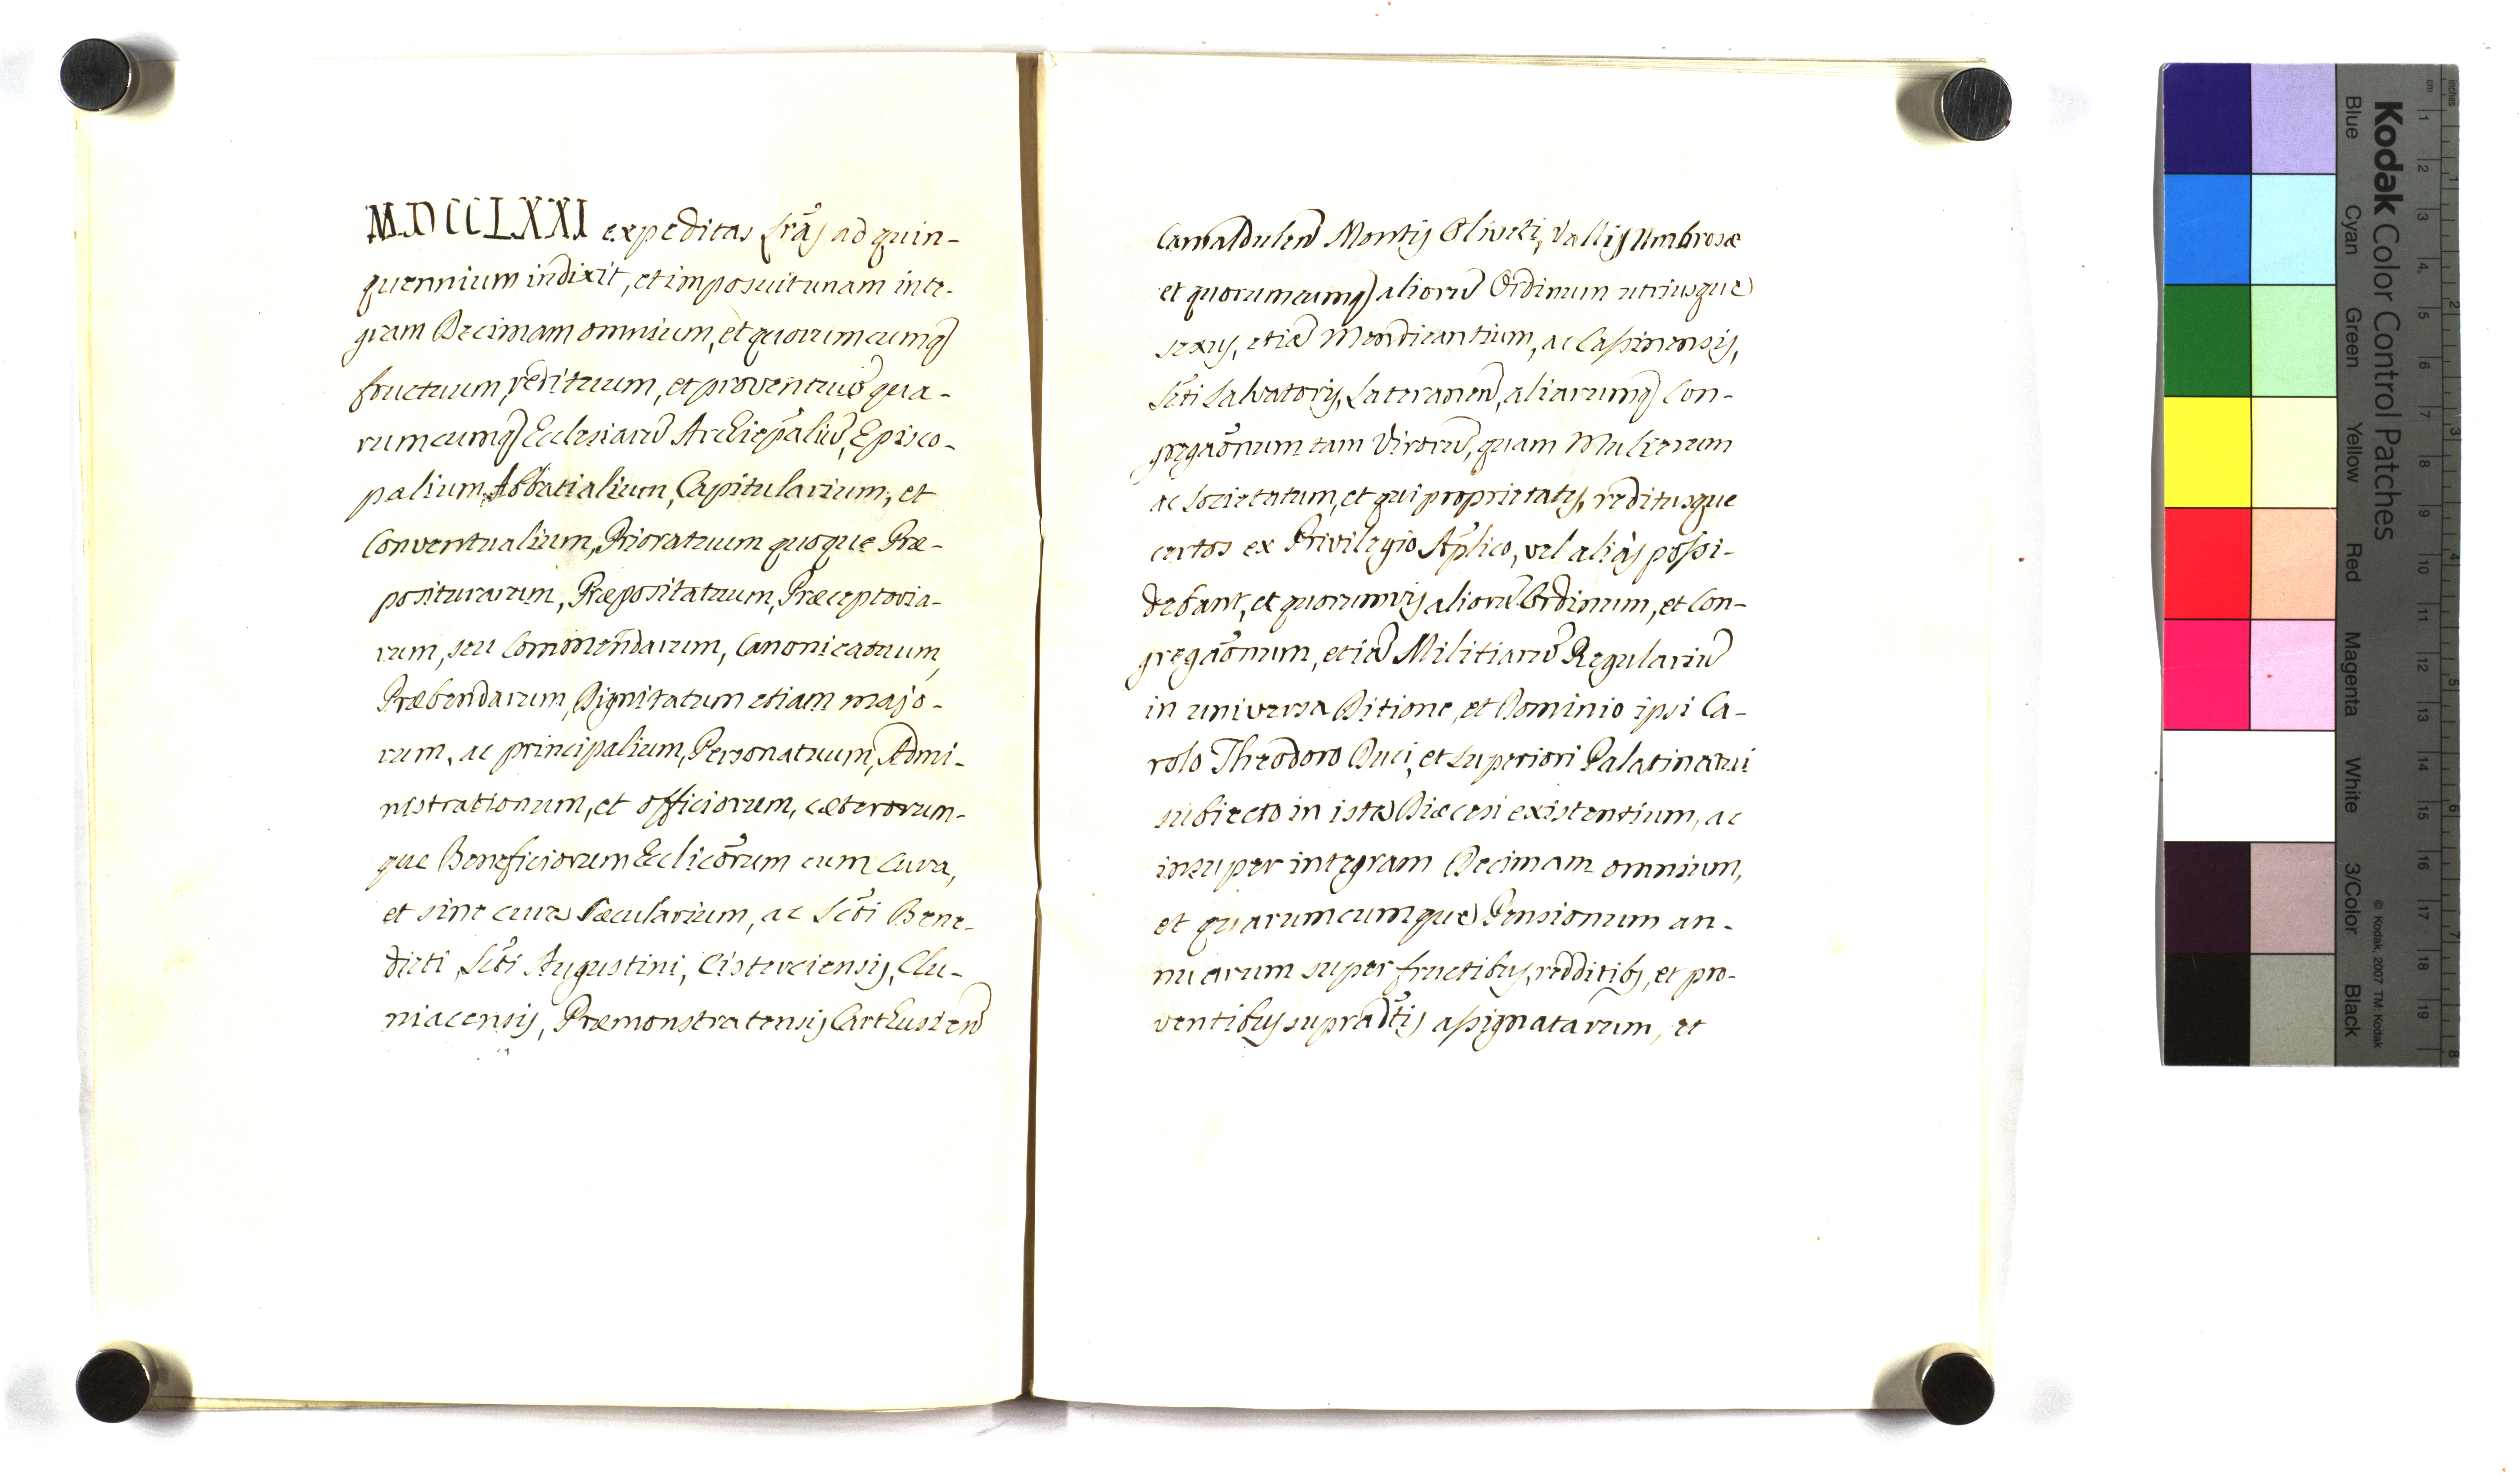 MDCCLXXI expeditas Lrãs ad quin-
quennium indixit, et imposuit unam inte-
gram Decimam omnium, et quorumcumq
fructuum, redituum, et proventuũ qua-
rumcumq Ecclesiarũ Archiepãliũ, Episco-
palium, Abbatialium, Capitularium, et
Conventualium, Prioratuum quoque Præ-
positurarum, Præpositatuum, Præceptoria-
rum, seu Commendarum, Canonicatuum,
Præbendarum, Dignitatum etiam majo-
rum, ac principalium, Personatuum, Admi-
nistrationum, et officiorum, cæterorum-
que Beneficiorum Ecclicõrum cum Cura,
et sine cura Sæcularium, ac Scti Bene-
dicti, Scti Augustini, Cisterciensis, Clu-
niacensis, Præmonstratensis Carthusien
Camaldulen Montis Oliveti, Vallis Umbrosæ
et quorumcumq aliorũ Ordinum utriusque
sexus, etiã Mendicantium, ac Cassinensis,
Scti Salvatoris, Lateranen, aliarumq Con-
gregãonum tam Virorũ, quam Mulierum
ac Societatum, et qui proprietates, reditusque
certos ex Privilegio Aplico, vel aliàs possi-
debant, et quorumvis aliorũ Ordinum, et Con-
gregãonum, etiã Militiarũ Regulariũ
in universa Ditione, et Dominio ipsi Ca-
rolo Theodoro Duci, et Superiori Palatinatui
subiecto in ista Diæcesi existentium, ac
insuper integram Decimam omnium,
et quarumcumque Pensionum an-
nuarum super fructibus, redditibs, et pro-
ventibus supradtis assignatarum, et
Kodak Color Control Patches
Blue
Cyan
Green
Yellow
Red
Magenta
White
3/Color
Black
© Kodak, 2007 TM: Kodak
cm 1 2 3 4 5 6 7 8 9 10 11 12 13 14 15 16 17 18 19
inches 1 2 3 4 5 6 7 8